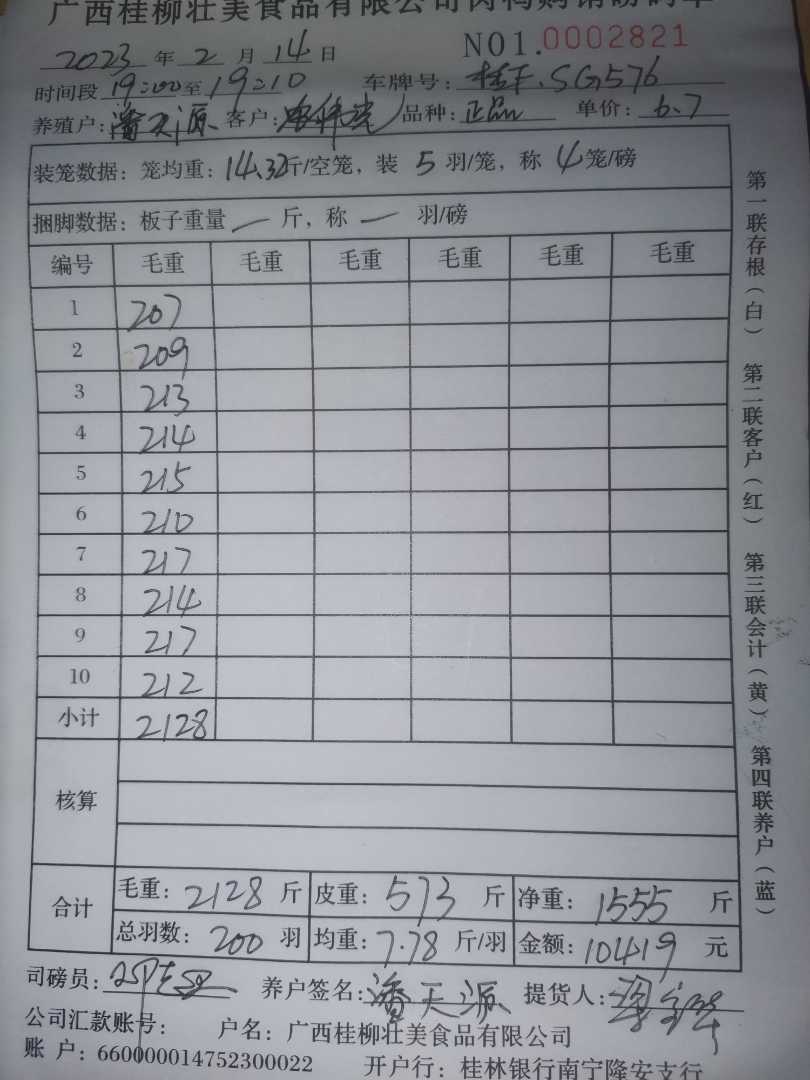 广西桂柳壮美食品有限公司肉鸭购销磅码单
2023 年 2 月 14 日 NO1.0002821
时间段 19:00 至 19:10 车牌号: 桂F.SG576
养殖户: 潘天源 客户: 品种: 正品 单价: 6.7
装笼数据: 笼均重: 14.32 斤/空笼, 装 5 羽/笼, 称 4 笼/磅
捆脚数据: 板子重量 — 斤, 称 — 羽/磅
编号 毛重 毛重 毛重 毛重 毛重 毛重
1 207
2 209
3 213
4 214
5 215
6 210
7 217
8 214
9 217
10 212
小计 2128
核算
合计 毛重: 2128 斤 皮重: 573 斤 净重: 1555 斤
总羽数: 200 羽 均重: 7.78 斤/羽 金额: 10419 元
司磅员: 养户签名: 潘天源 提货人:
公司汇款账号: 户名: 广西桂柳壮美食品有限公司
账 户: 660000014752300022 开户行: 桂林银行南宁隆安支行
第一联存根(白) 第二联客户(红) 第三联会计(黄) 第四联养户(蓝)